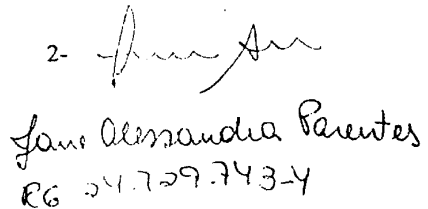 2-
Jane Alessandra Parentes
RG 24.729.743-4